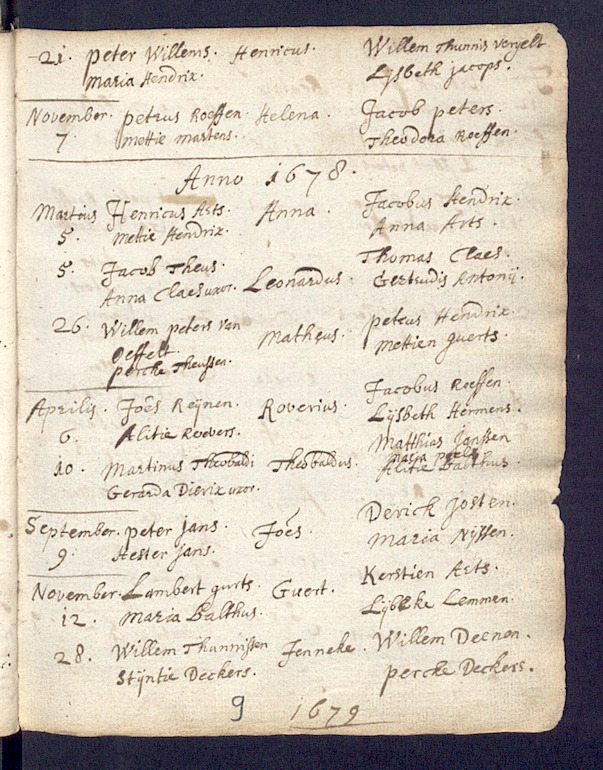 21. Peter Willems. Henricus. Willem Thunnis
Maria Hendrix. Lijsbeth Jacops.
November. Petrus Roeffen. Helena. Jacob Peters.
7. Mettie Martens. Theodora Roeffen.
Anno 1678.
Martius Henricus Arts. Anna. Jacobus Hendrix.
5. Mettie Hendrix. Anna Arts.
5. Jacob Theus. Leonardus. Thomas Claes.
Anna Claes uxor. Gertrudis Antonij.
26. Willem Peters van Matheus. Petrus Hendrix.
Oeffelt. Mettien Guerts.
Percke Theussen.
Aprilis. Joes Reijnen. Roverius. Jacobus Roeffen.
6. Alitie Roevers. Lijsbeth Hermens.
10. Martinus Theobaldi Theobaldus. Matthias Janssen
Gerarda Dierix uxor. Alitie Balthus.
September. Peter Jans. Joes. Derick Josten.
9. Hester Jans. Maria Nijssen.
November. Lambert Gurts. Guert. Kerstien Arts.
12. Maria Balthus. Lijbbeke Lemmen.
28. Willem Thunnissen Jenneke. Willem Deenen.
Stijntie Deckers. Percke Deckers.
9 1679